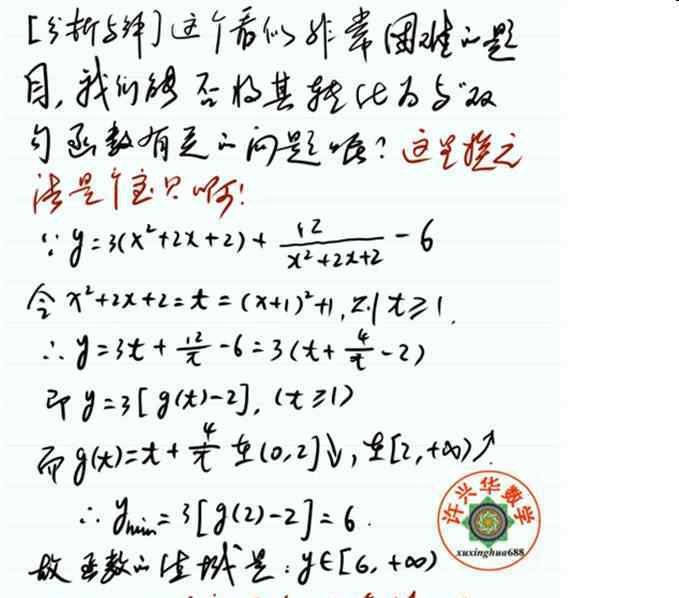 [分析与解]这个看似非常困难的题
目,我们能否将其转化为与"双
勾函数有关的问题呢?这里换元
法是个宝贝啊!
∵ y=3(x²+2x+2)+12/(x²+2x+2)-6
令 x²+2x+2=t=(x+1)²+1,则t≥1.
∴ y=3t+12/t-6=3(t+4/t-2)
即 y=3[g(t)-2],(t≥1)
而g(t)=t+4/t 在(0,2]↓,在[2,+∞)↗.
∴ ymin=3[g(2)-2]=6.
故函数的值域是:y∈[6,+∞)
许兴华数学
xuxinghua688